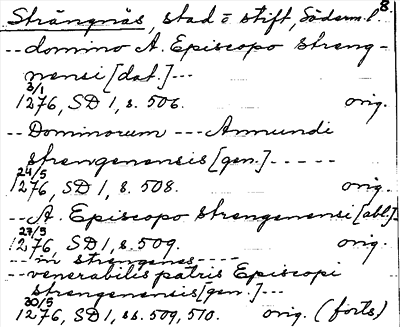 8.
Strängnäs, stad o stift, Söderm. l.
-- domino A. Episcopo streng-
nensi [dat.] ---
3/1
1276, SD 1, s. 506. orig.
-- Dominorum --- Anundi
strengenensis [gen.] -----
24/5
1276, SD 1, s. 508. orig.
-- A. Episcopo strengenensi [abl.] -
27/5
1276, SD 1, s. 509. orig.
--- in strengenes ----
-- venerabilis patris Episcopi
strengenensis [gen.] ---
30/5
1276, SD 1, ss. 509, 510. orig. (forts)